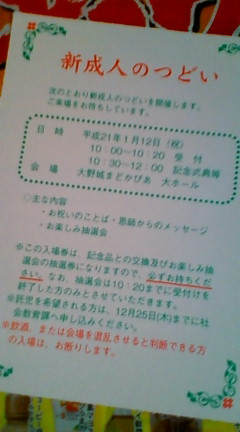 新成人のつどい
次のとおり新成人のつどいを開催します。
ご来場をお待ちしています。
日 時 平成21年1月12日(祝)
10:00〜10:20 受 付
10:30〜12:00 記念式典等
会 場 大野城まどかぴあ 大ホール
◇主な内容
・お祝いのことば・恩師からのメッセージ
・お楽しみ抽選会
※この入場券は、記念品との交換及びお楽しみ抽
選会の抽選券になりますので、必ずお持ちくださ
い。なお、抽選会は10:20までに受付を
終了した方のみとさせていただきます。
※託児を希望される方は、12月25日(木)までに社
会教育課へ申し込みください。
※飲酒、または会場を混乱させると判断できる方
の入場は、お断りします。